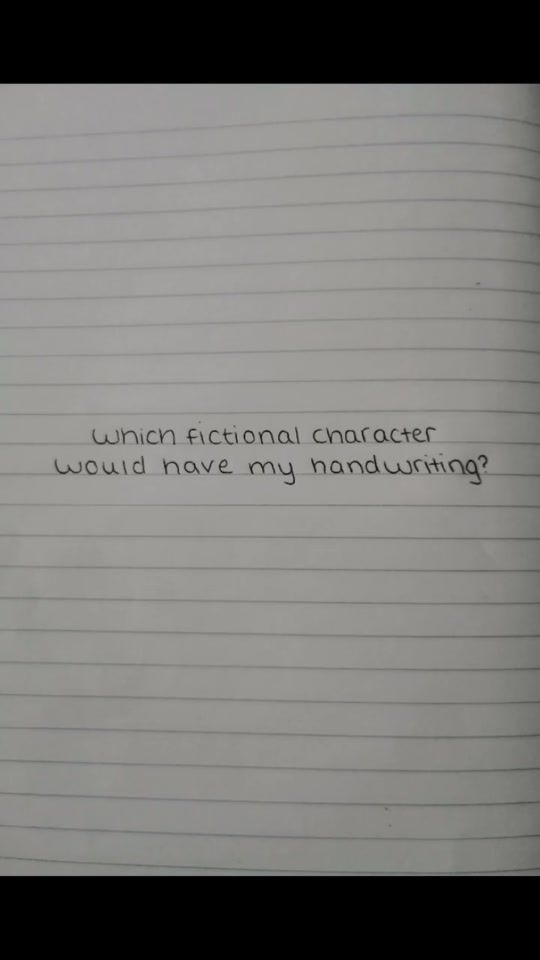 which fictional character
would have my handwriting?